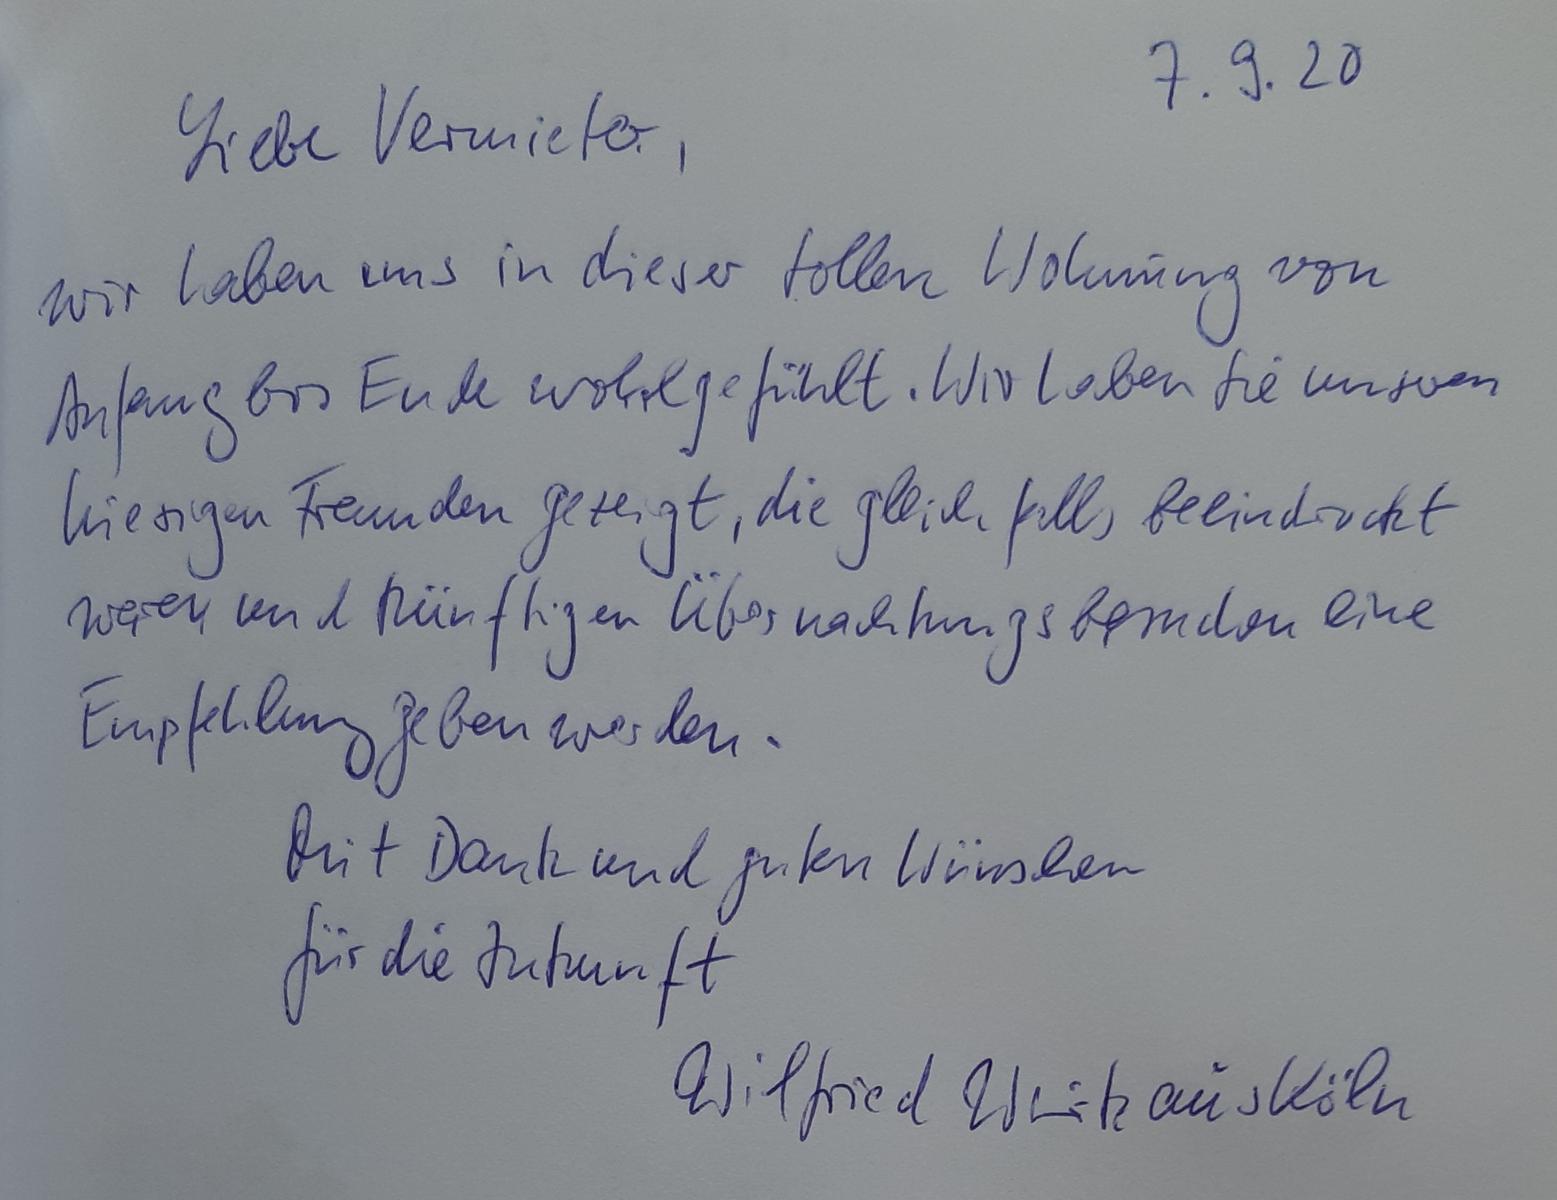 7.9.20
Liebe Vermieter,
wir haben uns in dieser tollen Wohnung von
Anfang bis Ende wohlgefühlt. Wir haben sie unseren
hiesigen Freunden gezeigt, die gleichfalls beeindruckt
waren und künftigen Übernachtungs eine
Empfehlung geben werden.
Mit Dank und guten Wünschen
für die Zukunft
Wilfried aus Köln